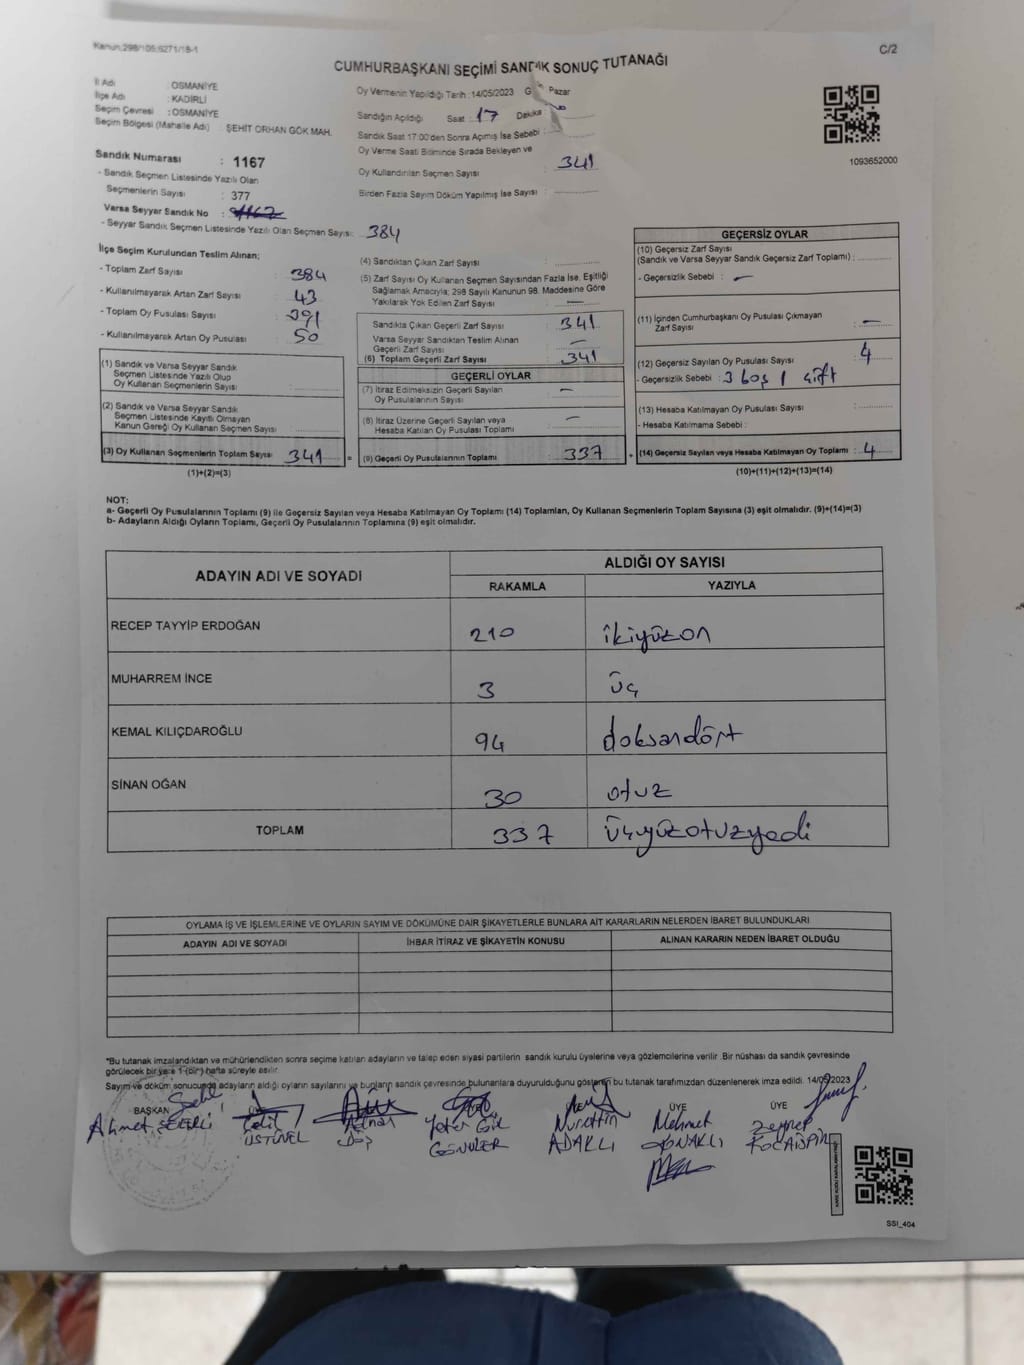 Kanun:298/105;6271/18-1
C/2
CUMHURBAŞKANI SEÇİMİ SANDIK SONUÇ TUTANAĞI
İl Adı : OSMANİYE
İlçe Adı : KADİRLİ
Seçim Çevresi : OSMANİYE
Seçim Bölgesi (Mahalle Adı) : ŞEHİT ORHAN GÖK MAH.
Sandık Numarası : 1167
- Sandık Seçmen Listesinde Yazılı Olan
Seçmenlerin Sayısı : 377
Varsa Seyyar Sandık No :
- Seyyar Sandık Seçmen Listesinde Yazılı Olan Seçmen Sayısı: 384
Oy Vermenin Yapıldığı Tarih :14/05/2023 Pazar
Sandığın Açıldığı Saat : 17 Dakika
Sandık Saat 17:00'den Sonra Açılmış İse Sebebi :
Oy Verme Saati Bitiminde Sırada Bekleyen ve
Oy Kullandırılan Seçmen Sayısı : 341
Birden Fazla Sayım Döküm Yapılmış İse Sayısı :
1093652000
İlçe Seçim Kurulundan Teslim Alınan;
- Toplam Zarf Sayısı : 384
- Kullanılmayarak Artan Zarf Sayısı : 43
- Toplam Oy Pusulası Sayısı : 391
- Kullanılmayarak Artan Oy Pusulası : 50
(1) Sandık ve Varsa Seyyar Sandık
Seçmen Listesinde Yazılı Olup
Oy Kullanan Seçmenlerin Sayısı :
(2) Sandık ve Varsa Seyyar Sandık
Seçmen Listesinde Kayıtlı Olmayan
Kanun Gereği Oy Kullanan Seçmen Sayısı :
(3) Oy Kullanan Seçmenlerin Toplam Sayısı : 341 =
(1)+(2)=(3)
(4) Sandıktan Çıkan Zarf Sayısı :
(5) Zarf Sayısı Oy Kullanan Seçmen Sayısından Fazla İse, Eşitliği
Sağlamak Amacıyla; 298 Sayılı Kanunun 98. Maddesine Göre
Yakılarak Yok Edilen Zarf Sayısı : —
Sandıkta Çıkan Geçerli Zarf Sayısı : 341
Varsa Seyyar Sandıktan Teslim Alınan
Geçerli Zarf Sayısı : —
(6) Toplam Geçerli Zarf Sayısı : 341
GEÇERLİ OYLAR
(7) İtiraz Edilmeksizin Geçerli Sayılan
Oy Pusulalarının Sayısı : —
(8) İtiraz Üzerine Geçerli Sayılan veya
Hesaba Katılan Oy Pusulası Toplamı : —
(9) Geçerli Oy Pusulalarının Toplamı : 337 +
GEÇERSİZ OYLAR
(10) Geçersiz Zarf Sayısı
(Sandık ve Varsa Seyyar Sandık Geçersiz Zarf Toplamı) :
- Geçersizlik Sebebi : —
(11) İçinden Cumhurbaşkanı Oy Pusulası Çıkmayan
Zarf Sayısı : —
(12) Geçersiz Sayılan Oy Pusulası Sayısı : 4
- Geçersizlik Sebebi : 3 boş 1 çift
(13) Hesaba Katılmayan Oy Pusulası Sayısı :
- Hesaba Katılmama Sebebi :
(14) Geçersiz Sayılan veya Hesaba Katılmayan Oy Toplamı : 4
(10)+(11)+(12)+(13)=(14)
NOT:
a- Geçerli Oy Pusulalarının Toplamı (9) ile Geçersiz Sayılan veya Hesaba Katılmayan Oy Toplamı (14) Toplamları, Oy Kullanan Seçmenlerin Toplam Sayısına (3) eşit olmalıdır. (9)+(14)=(3)
b- Adayların Aldığı Oyların Toplamı, Geçerli Oy Pusulalarının Toplamına (9) eşit olmalıdır.
ADAYIN ADI VE SOYADI ALDIĞI OY SAYISI
RAKAMLA YAZIYLA
RECEP TAYYİP ERDOĞAN 210 ikiyüzon
MUHARREM İNCE 3 üç
KEMAL KILIÇDAROĞLU 94 doksandört
SİNAN OĞAN 30 otuz
TOPLAM 337 üçyüzotuzyedi
OYLAMA İŞ VE İŞLEMLERİNE VE OYLARIN SAYIM VE DÖKÜMÜNE DAİR ŞİKAYETLERLE BUNLARA AİT KARARLARIN NELERDEN İBARET BULUNDUKLARI
ADAYIN ADI VE SOYADI İHBAR İTİRAZ VE ŞİKAYETİN KONUSU ALINAN KARARIN NEDEN İBARET OLDUĞU
*Bu tutanak imzalandıktan ve mühürlendikten sonra seçime katılan adayların ve talep eden siyasi partilerin sandık kurulu üyelerine veya gözlemcilerine verilir. Bir nüshası da sandık çevresinde
görülecek bir yere 1-(bir) hafta süreyle asılır.
Sayım ve döküm sonucunda adayların aldığı oyların sayılarını ve bunların sandık çevresinde bulunanlara duyurulduğunu gösteren bu tutanak tarafımızdan düzenlenerek imza edildi. 14/05/2023
BAŞKAN ÜYE ÜYE
Ahmet Adnan Yeter Gül Nurettin Mehmet Zeynep
ÜSTÜNEL GÖNÜLER ADAKLI
SSI_404